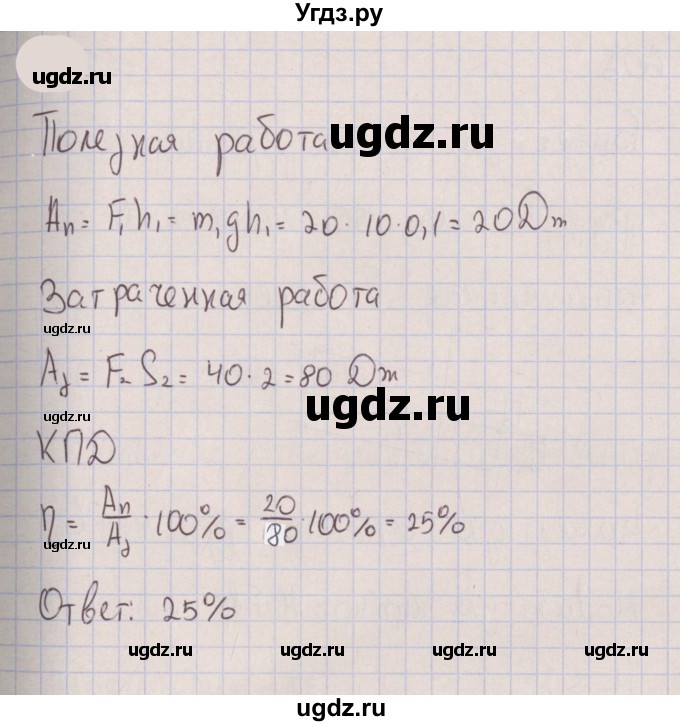 Угдз.ру
ugdz.ru
Полезная работа ugdz.ru
Aп = F₁h₁ = m₁gh₁ = 20 · 10 · 0,1 = 20 Дж
Затраченная работа
ugdz.ru
Aз = F₂ S₂ = 40 · 2 = 80 Дж
ugdz.ru ugdz.ru
КПД
η = Aп/Aз · 100% = 20/80 · 100% = 25%
ugdz.ru
Ответ: 25%
ugdz.ru ugdz.ru ugdz.ru ugdz.ru
Угдз.ру